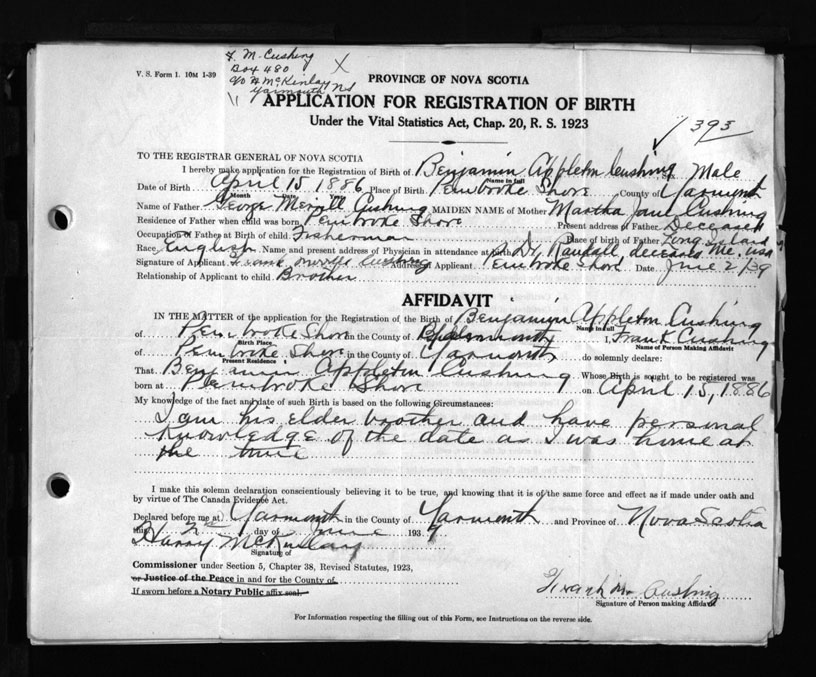 F. M. Cushing
Box 480
c/o H McKinlay
Yarmouth NS
X
V. S. Form 1. 10M 1-39
PROVINCE OF NOVA SCOTIA
APPLICATION FOR REGISTRATION OF BIRTH
Under the Vital Statistics Act, Chap. 20, R. S. 1923
393
TO THE REGISTRAR GENERAL OF NOVA SCOTIA
I hereby make application for the Registration of Birth of Benjamin Appleton Cushing Sex Male
Name in full
Date of Birth April 15 1886 Place of Birth Pembroke Shore County of Yarmouth
Month Date
Name of Father George Merrill Cushing MAIDEN NAME of Mother Martha Jane Cushing
Residence of Father when child was born Pembroke Shore Present address of Father Deceased
Occupation of Father at Birth of child Fisherman Place of Birth of Father Long Island
Race English Name and present address of Physician in attendance at birth Dr. Randall, deceased Me. USA
Signature of Applicant Frank Cushing Address of Applicant Pembroke Shore Date June 2/39
Relationship of Applicant to child Brother
AFFIDAVIT
IN THE MATTER of the application for the Registration of the Birth of Benjamin Appleton Cushing
Name in full
of Pembroke Shore in the County of Yarmouth I, Frank Cushing
Birth Place Name of Person Making Affidavit
of Pembroke Shore in the County of Yarmouth do solemnly declare:
Present Residence
That Benjamin Appleton Cushing Whose Birth is sought to be registered was
born at Pembroke Shore on April 15, 1886
My knowledge of the fact and date of such Birth is based on the following Circumstances:
I am his elder brother and have personal
knowledge of the date as I was home at
the time
I make this solemn declaration conscientiously believing it to be true, and knowing that it is of the same force and effect as if made under oath and
by virtue of The Canada Evidence Act.
Declared before me at Yarmouth in the County of Yarmouth and Province of Nova Scotia
this 2nd day of June 1939
Harry McKinlay
Signature of
Commissioner under Section 5, Chapter 38, Revised Statutes, 1923,
or Justice of the Peace in and for the County of
If sworn before a Notary Public affix seal.
Frank M Cushing
Signature of Person making Affidavit
For Information respecting the filling out of this Form, see Instructions on the reverse side.